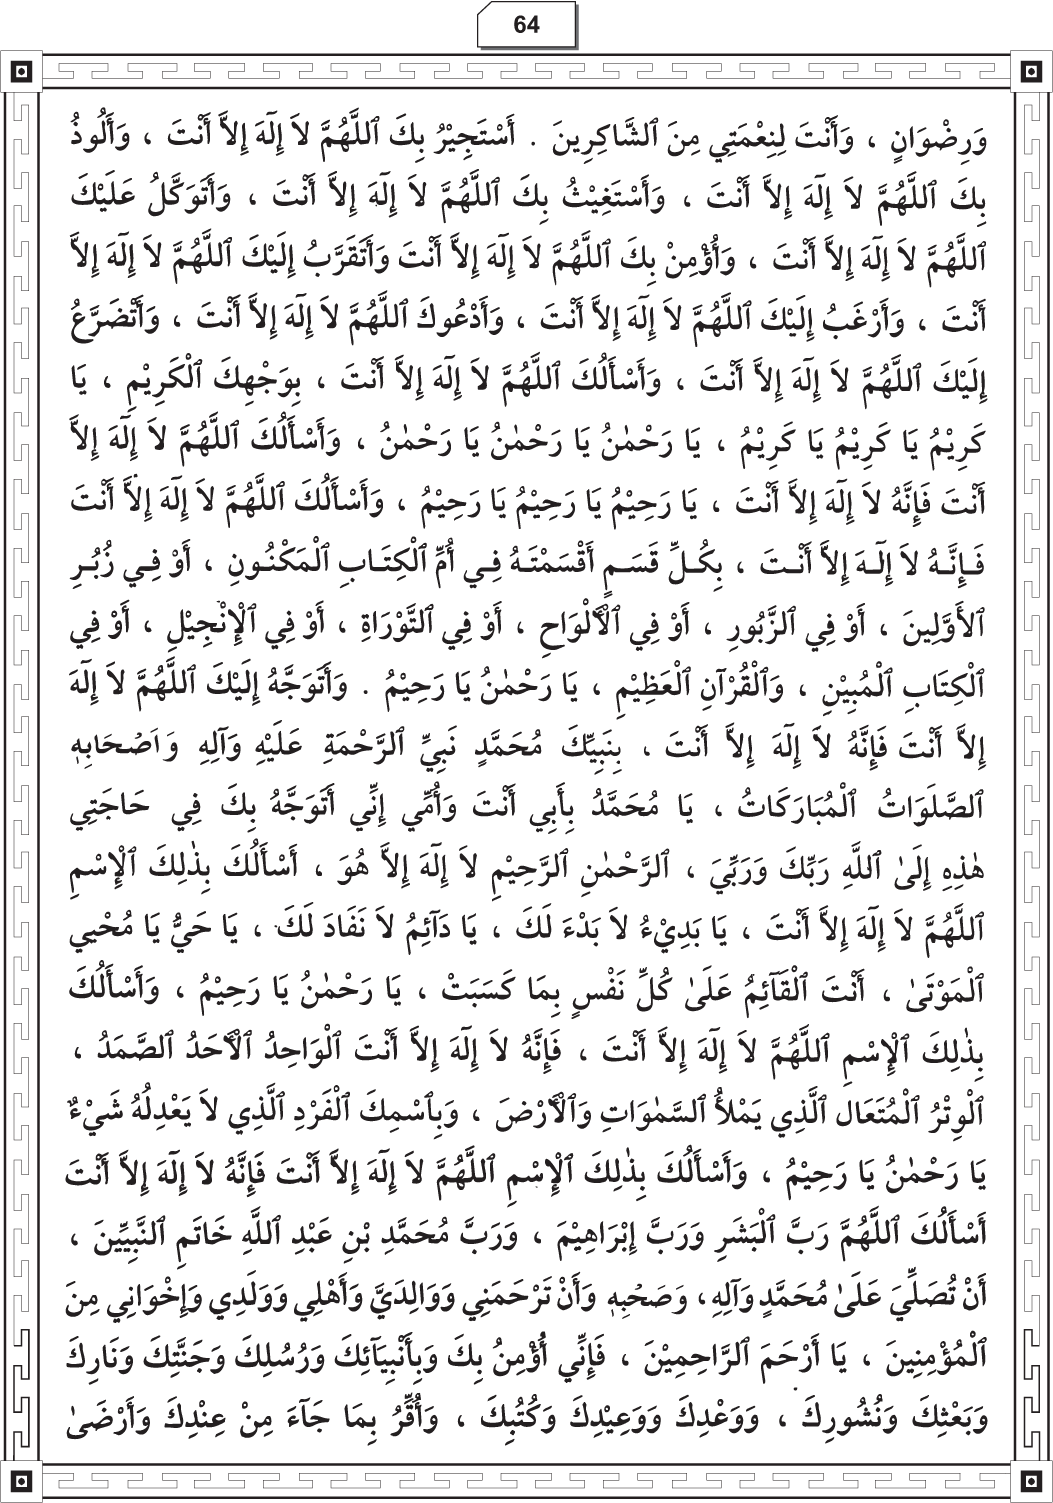 64
وَرِضْوَانٍ ، وَأَنْتَ لِنِعْمَتِي مِنَ ٱلشَّاكِرِينَ . أَسْتَجِيْرُ بِكَ ٱللَّهُمَّ لاَ إِلَٓهَ إِلاَّ أَنْتَ ، وَأَلُوذُ
بِكَ ٱللَّهُمَّ لاَ إِلَٓهَ إِلاَّ أَنْتَ ، وَأَسْتَغِيْثُ بِكَ ٱللَّهُمَّ لاَ إِلَٓهَ إِلاَّ أَنْتَ ، وَأَتَوَكَّلُ عَلَيْكَ
ٱللَّهُمَّ لاَ إِلَٓهَ إِلاَّ أَنْتَ ، وَأُؤْمِنْ بِكَ ٱللَّهُمَّ لاَ إِلَٓهَ إِلاَّ أَنْتَ وَأَتَقَرَّبُ إِلَيْكَ ٱللَّهُمَّ لاَ إِلَٓهَ إِلاَّ
أَنْتَ ، وَأَرْغَبُ إِلَيْكَ ٱللَّهُمَّ لاَ إِلَٓهَ إِلاَّ أَنْتَ ، وَأَدْعُوكَ ٱللَّهُمَّ لاَ إِلَٓهَ إِلاَّ أَنْتَ ، وَأَتْضَرَّعُ
إِلَيْكَ ٱللَّهُمَّ لاَ إِلَٓهَ إِلاَّ أَنْتَ ، وَأَسْأَلُكَ ٱللَّهُمَّ لاَ إِلَٓهَ إِلاَّ أَنْتَ ، بِوَجْهِكَ ٱلْكَرِيْمِ ، يَا
كَرِيْمُ يَا كَرِيْمُ يَا كَرِيْمُ ، يَا رَحْمٰنُ يَا رَحْمٰنُ يَا رَحْمٰنُ ، وَأَسْأَلُكَ ٱللَّهُمَّ لاَ إِلَٓهَ إِلاَّ
أَنْتَ فَإِنَّهُ لاَ إِلَٓهَ إِلاَّ أَنْتَ ، يَا رَحِيْمُ يَا رَحِيْمُ يَا رَحِيْمُ ، وَأَسْأَلُكَ ٱللَّهُمَّ لاَ إِلَٓهَ إِلاَّ أَنْتَ
فَـإِنَّـهُ لاَ إِلَٓـهَ إِلاَّ أَنْـتَ ، بِكُـلِّ قَسَـمٍ أَقْسَمْتَـهُ فِـي أُمِّ ٱلْكِتَـابِ ٱلْمَكْنُـونِ ، أَوْ فِـي زُبُـرِ
ٱلأَوَّلِينَ ، أَوْ فِي ٱلزَّبُورِ ، أَوْ فِي ٱلْأَلْوَاحِ ، أَوْ فِي ٱلتَّوْرَاةِ ، أَوْ فِي ٱلْإِنْجِيْلِ ، أَوْ فِي
ٱلْكِتَابِ ٱلْمُبِيْنِ ، وَٱلْقُرْآنِ ٱلْعَظِيْمِ ، يَا رَحْمٰنُ يَا رَحِيْمُ . وَأَتَوَجَّهُ إِلَيْكَ ٱللَّهُمَّ لاَ إِلَٓهَ
إِلاَّ أَنْتَ فَإِنَّهُ لاَ إِلَٓهَ إِلاَّ أَنْتَ ، بِنَبِيِّكَ مُحَمَّدٍ نَبِيِّ ٱلرَّحْمَةِ عَلَيْهِ وَآلِهِ وَاَصْحَابِهِ
ٱلصَّلَوَاتُ ٱلْمُبَارَكَاتُ ، يَا مُحَمَّدُ بِأَبِي أَنْتَ وَأُمِّي إِنِّي أَتَوَجَّهُ بِكَ فِي حَاجَتِي
هٰذِهِ إِلَىٰ ٱللَّهِ رَبِّكَ وَرَبِّيَ ، ٱلرَّحْمٰنِ ٱلرَّحِيْمِ لاَ إِلَٓهَ إِلاَّ هُوَ ، أَسْأَلُكَ بِذٰلِكَ ٱلْإِسْمِ
ٱللَّهُمَّ لاَ إِلَٓهَ إِلاَّ أَنْتَ ، يَا بَدِيْءُ لاَ بَدْءَ لَكَ ، يَا دَآئِمُ لاَ نَفَادَ لَكَ ، يَا حَيُّ يَا مُحْيِي
ٱلْمَوْتَىٰ ، أَنْتَ ٱلْقَآئِمُ عَلَىٰ كُلِّ نَفْسٍ بِمَا كَسَبَتْ ، يَا رَحْمٰنُ يَا رَحِيْمُ ، وَأَسْأَلُكَ
بِذٰلِكَ ٱلْإِسْمِ ٱللَّهُمَّ لاَ إِلَٓهَ إِلاَّ أَنْتَ ، فَإِنَّهُ لاَ إِلَٓهَ إِلاَّ أَنْتَ ٱلْوَاحِدُ ٱلْأَحَدُ ٱلصَّمَدُ ،
ٱلْوِتْرُ ٱلْمُتَعَال ٱلَّذِي يَمْلأُ ٱلسَّمٰوَاتِ وَٱلْأَرْضَ ، وَبِٱسْمِكَ ٱلْفَرْدِ ٱلَّذِي لاَ يَعْدِلُهُ شَيْءٌ
يَا رَحْمٰنُ يَا رَحِيْمُ ، وَأَسْأَلُكَ بِذٰلِكَ ٱلْإِسْمِ ٱللَّهُمَّ لاَ إِلَٓهَ إِلاَّ أَنْتَ فَإِنَّهُ لاَ إِلَٓهَ إِلاَّ أَنْتَ
أَسْأَلُكَ ٱللَّهُمَّ رَبَّ ٱلْبَشَرِ وَرَبَّ إِبْرَاهِيْمَ ، وَرَبَّ مُحَمَّدِ بْنِ عَبْدِ ٱللَّهِ خَاتَمِ ٱلنَّبِيِّينَ ،
أَنْ تُصَلِّيَ عَلَىٰ مُحَمَّدٍ وَآلِهِ، وَصَحْبِهِ وَأَنْ تَرْحَمَنِي وَوَالِدَيَّ وَأَهْلِي وَوَلَدِي وَإِخْوَانِي مِنَ
ٱلْمُؤْمِنِينَ ، يَا أَرْحَمَ ٱلرَّاحِمِيْنَ ، فَإِنِّي أُؤْمِنُ بِكَ وَبِأَنْبِيَآئِكَ وَرُسُلِكَ وَجَنَّتِكَ وَنَارِكَ
وَبَعْثِكَ وَنُشُورِكَ ، وَوَعْدِكَ وَوَعِيْدِكَ وَكُتُبِكَ ، وَأُقِرُّ بِمَا جَآءَ مِنْ عِنْدِكَ وَأَرْضَىٰ